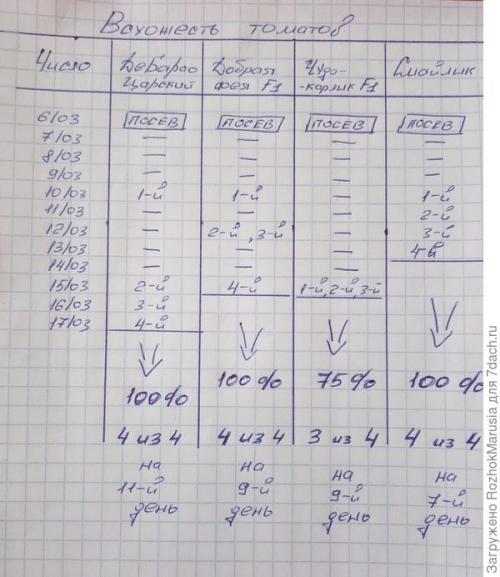 Всхожесть томатов
Число ДеБарао Царский Добрая фея F1 Чудо-карлик F1 Смайлик
6/03 ПОСЕВ ПОСЕВ ПОСЕВ ПОСЕВ
7/03 — — — —
8/03 — — — —
9/03 — — — —
10/03 1-й 1-й — 1-й
11/03 — — — 2-й
12/03 — 2-й, 3-й — 3-й
13/03 — — — 4-й
14/03 — — —
15/03 2-й 4-й 1-й, 2-й, 3-й
16/03 3-й
17/03 4-й
100% 100% 75% 100%
4 из 4 4 из 4 3 из 4 4 из 4
на на на на
11-й 9-й 9-й 7-й
день день день день
Загружено RozhokMarusia для 7dach.ru